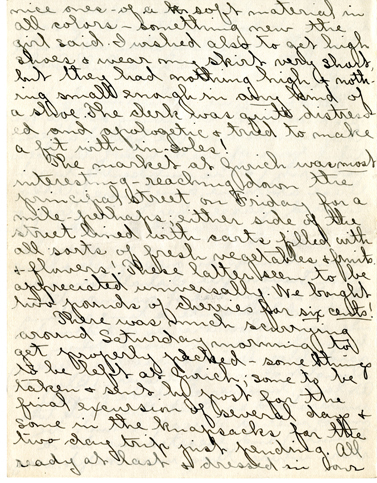 nice ones - of a soft material in
all colors - something new the
girl said. I wished also to get high
shoes & wear my skirt very short
but they had nothing high & noth-
ing small enough in any kind of
a shoe. The clerk was quite distress-
ed and apologetic & tried to make
a fit with in-soles!
The market at Zurich was most
interesting - reaching down the
principal street on Friday for a
mile perhaps, either side of the
street lined with carts filled with
all sorts of fresh vegetables & fruits
& flowers. These latter seem to be
appreciated universally. We bought
two pounds of cherries for six cents!
There was much scurrying
around Saturday morning to
get properly packed - something
to be left at Zurich; some to be
taken & sent by post for the
final excursion of several days &
some in the knapsacks for the
two day trip just pending. All
ready at last & dressed in our